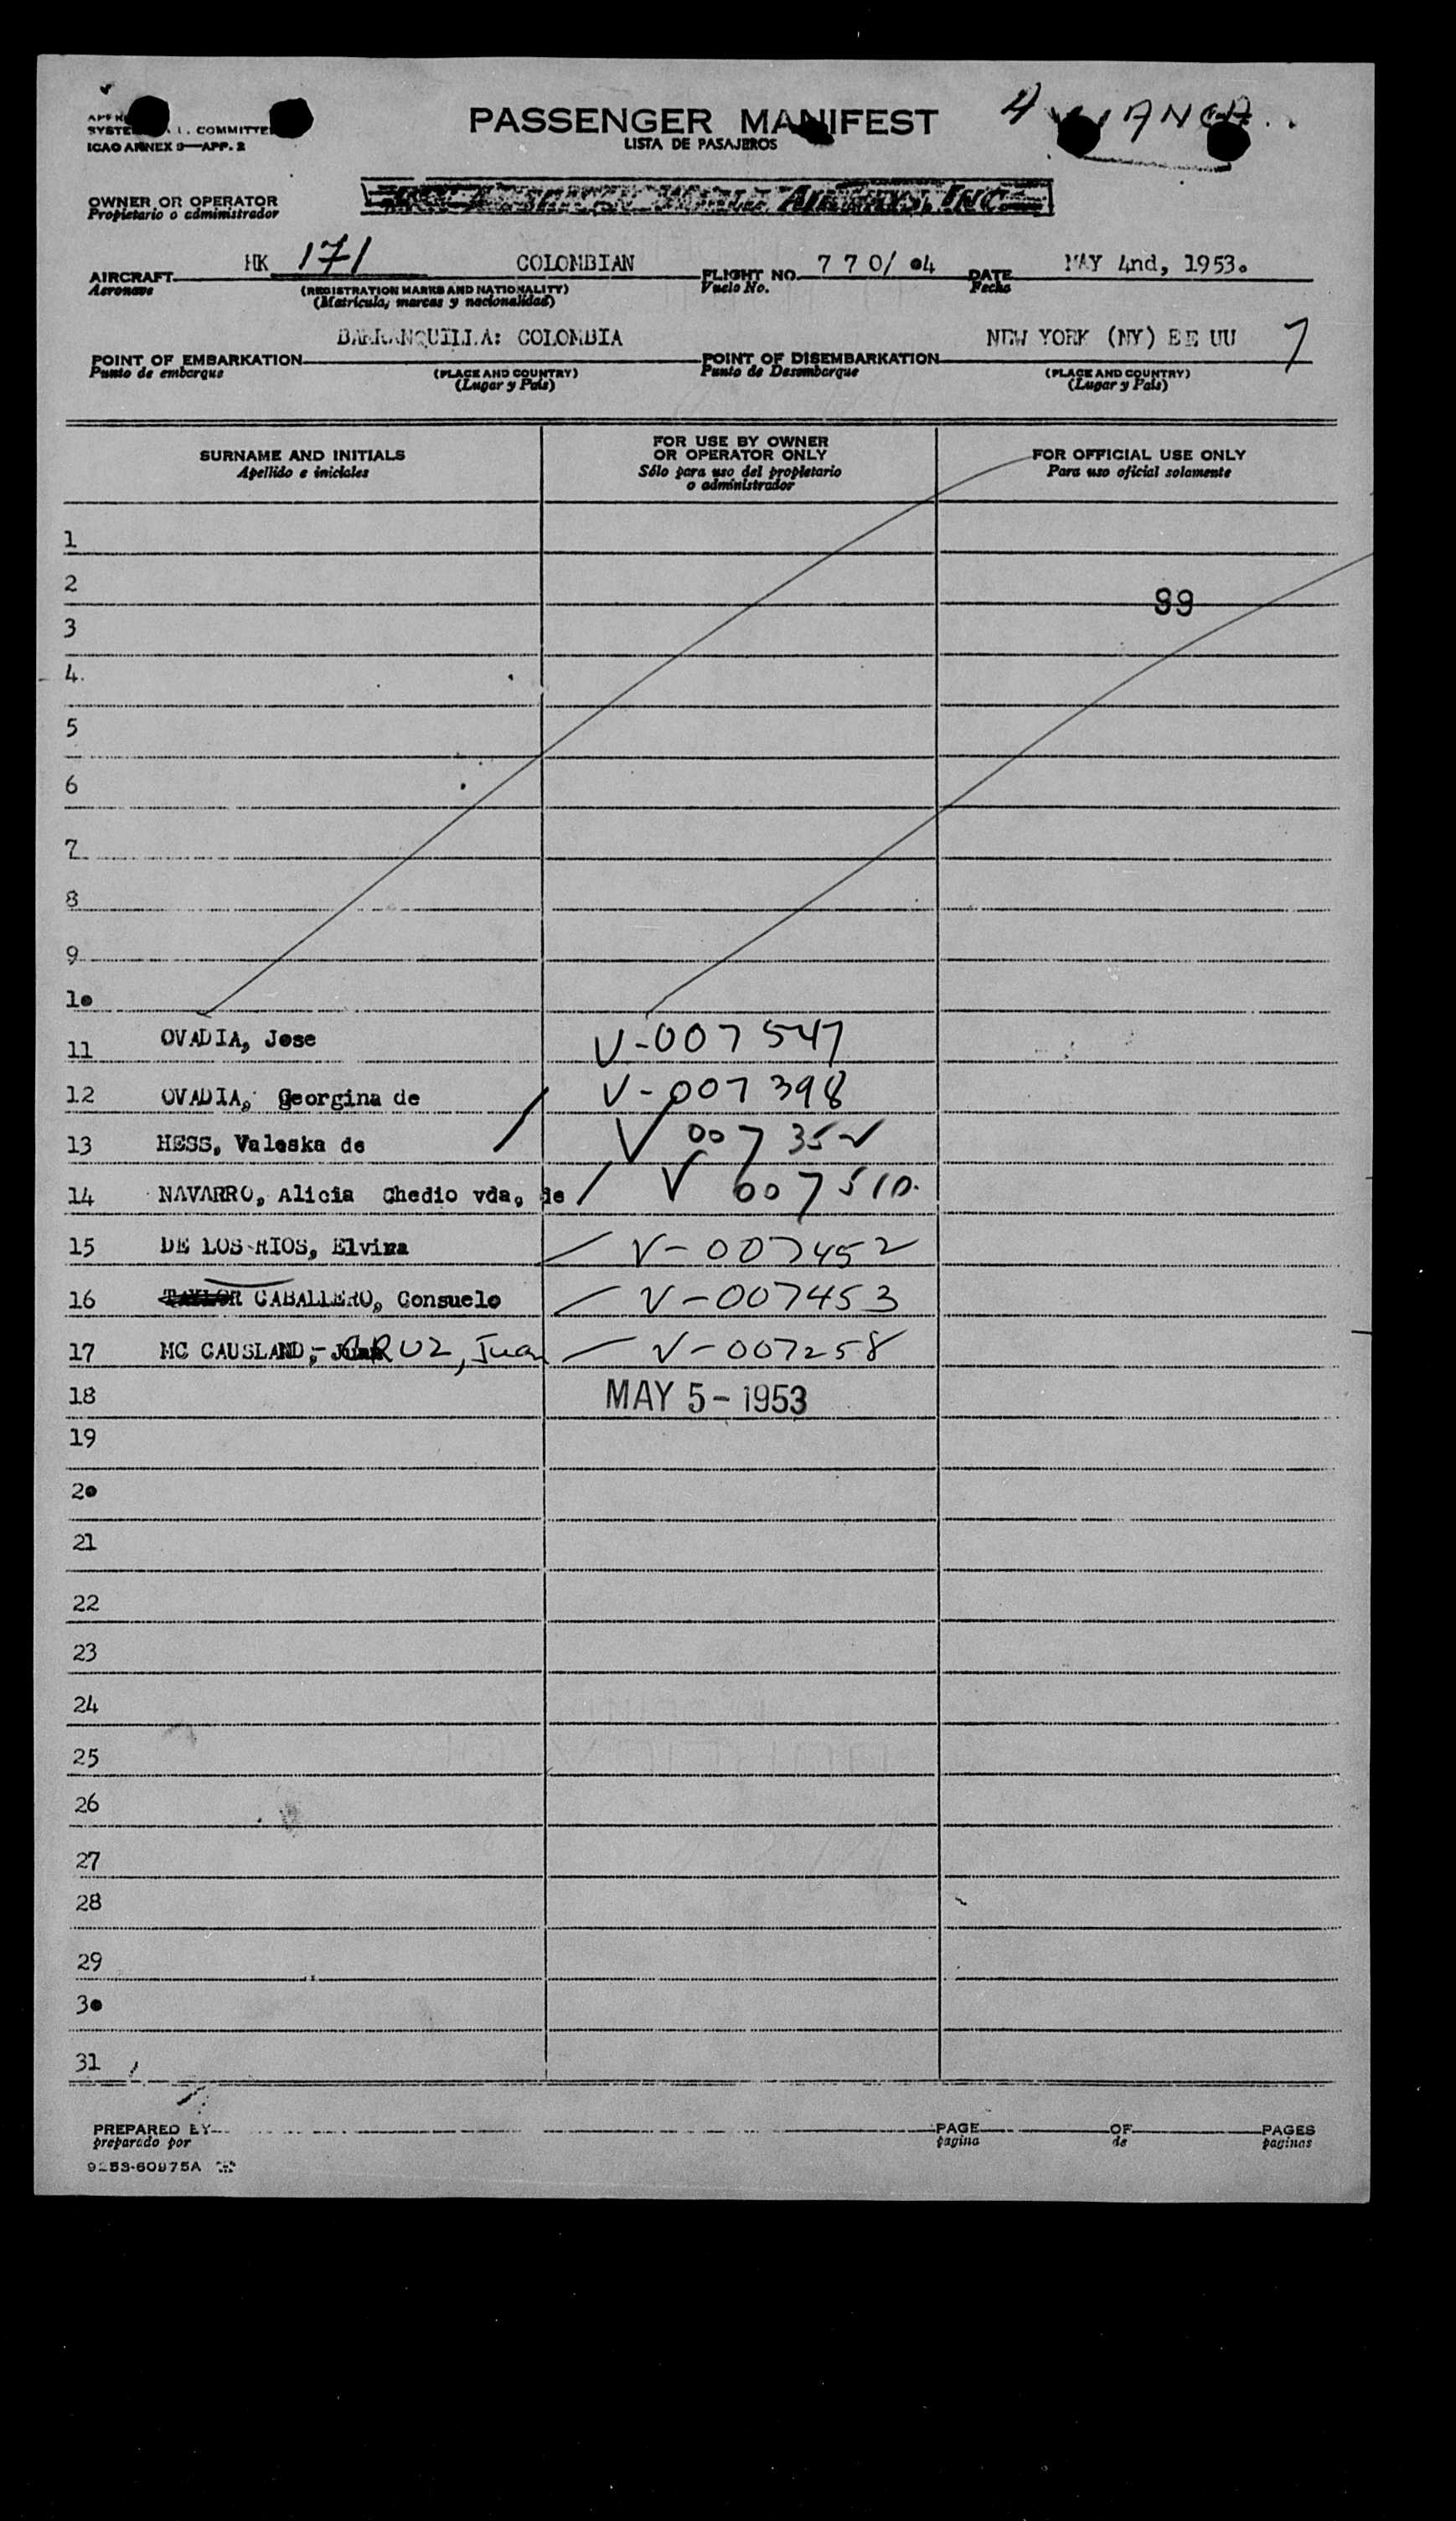 PASSENGER MANIFEST
LISTA DE PASAJEROS
COMMITTEE
ICAO ANNEX 9—APP. 2
OWNER OR OPERATOR
Propietario o administrador
AIRWAYS, INC
AIRCRAFT HK 171 COLOMBIAN FLIGHT NO. 7 7 0/ 04 DATE MAY 4nd, 1953.
Aeronave (REGISTRATION MARKS AND NATIONALITY) Vuelo No. Fecha
(Matrícula, marcas y nacionalidad)
BARRANQUILLA: COLOMBIA NEW YORK (NY) EE UU 7
POINT OF EMBARKATION POINT OF DISEMBARKATION
Punto de embarque (PLACE AND COUNTRY) Punto de Desembarque (PLACE AND COUNTRY)
(Lugar y País) (Lugar y País)
SURNAME AND INITIALS
Apellido e iniciales
FOR USE BY OWNER
OR OPERATOR ONLY
Sólo para uso del propietario
o administrador
FOR OFFICIAL USE ONLY
Para uso oficial solamente
1
2
99
3
4.
5
6
7
8
9
10
11 OVADIA, Jose V-007547
12 OVADIA, Georgina de V-007398
13 HESS, Valeska de V 007352
14 NAVARRO, Alicia Chedio vda. de V 007510.
15 DE LOS RIOS, Elvira V-007452
16 TAYLOR CABALLERO, Consuelo V-007453
17 MC CAUSLAND,-CRUZ, Juan V-007258
18 MAY 5-1953
19
20
21
22
23
24
25
26
27
28
29
30
31
PREPARED BY PAGE OF PAGES
preparado por pagina de paginas
9253-60975A